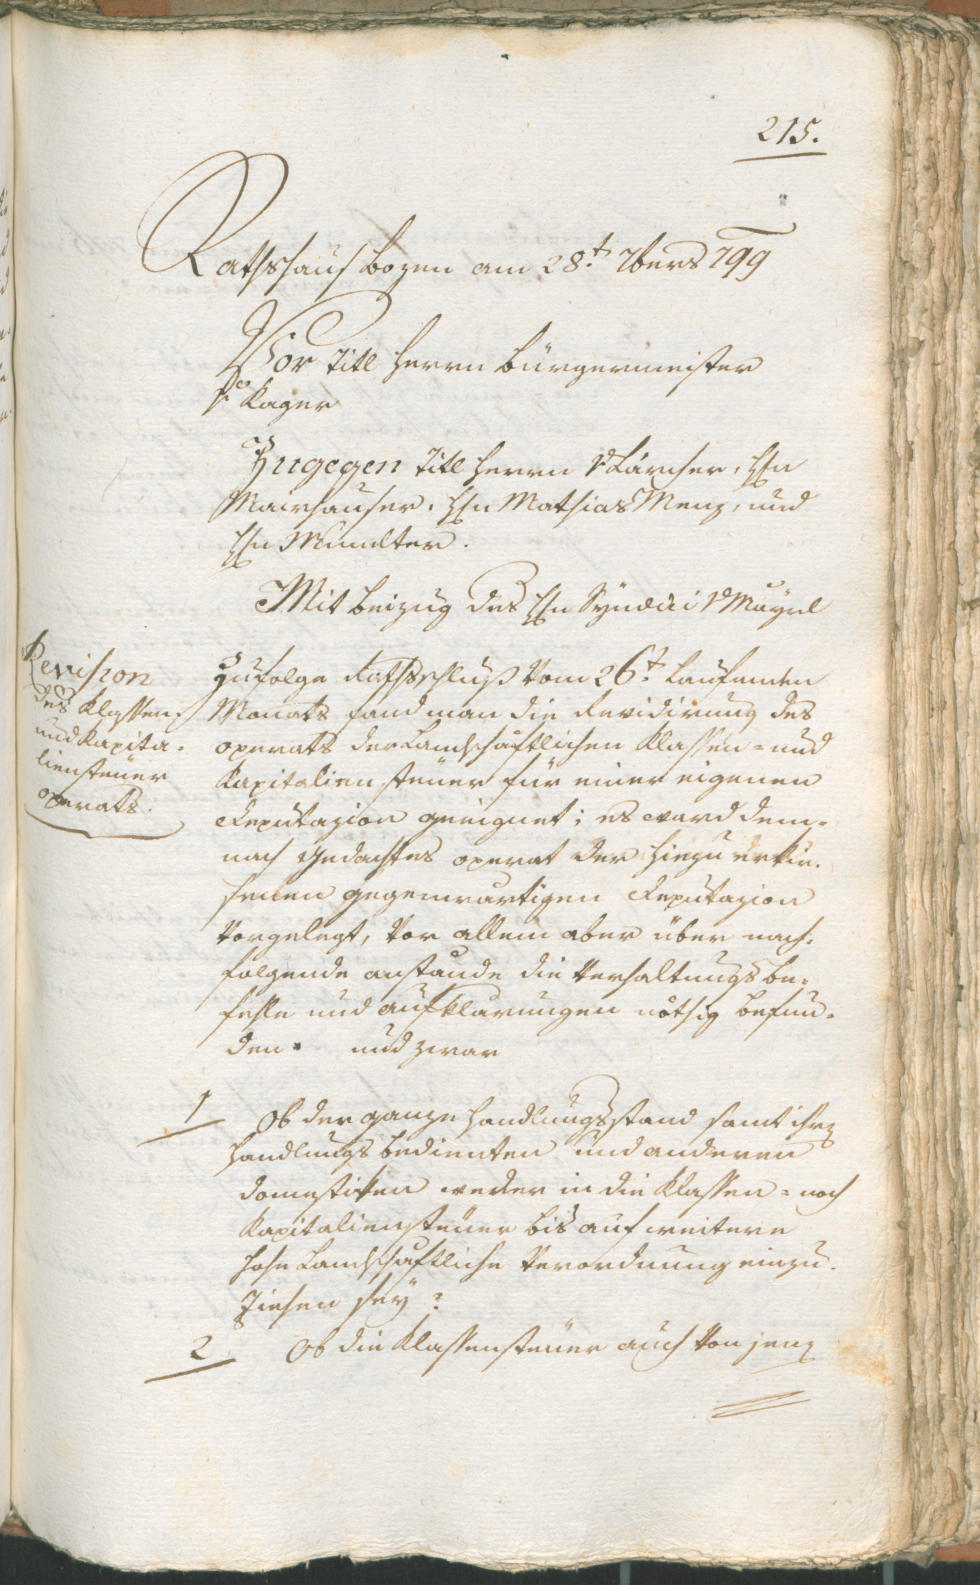 215.
Rathshaus Bozen am 28t. 7bers 799
Vor Titl Herrn Bürgermeister
v. Kager
Zugegen Titl Herrn v Larcher, Hrn
Mairhauser, Hrn Mathias Menz, und
Hrn Mumelter.
Mit Beizug des Hrn Syndici v Mayrl
Revision
des Klassen
und Kapita-
liensteuer
operats.
Zufolge Rathsschluß vom 26t. laufenden
Monats fand man die Revidirung des
operats der Landschaftlichen Klassen- und
Kapitalien steuer für einer eigenen
Deputazion geeignet; es ward dem-
nach gedachtes operat der hiezu erkie-
senen gegenwärtigen Deputazion
vorgelegt, vor allem aber über nach-
folgende anstände die Verhaltungsbe-
fehle und Aufklärungen nöthig befun-
den. und zwar
1 Ob der ganze Handlungsstand samt ihren
Handlungs bedienten und anderen
Domestiken weder in die Klassen- noch
Kapitaliensteuer bis auf weitere
hohe Landschaftliche Verordnung einzu-
ziehen sey?
2 Ob die Klassensteuer auch von jenen